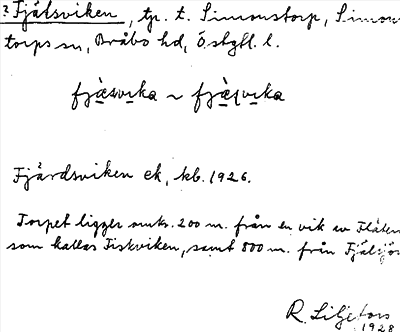 ? Fjälsviken, tp. t. Simonstorp, Simons
torps sn, Bråbo hd, Östgtl. l.
fjæ̀svika ~ fjæ̀ʂvika
Fjärdsviken ek, kb. 1926.
Torpet ligger omkr. 200 m. från en vik av Fläten
som kallas Fiskviken, samt 800 m. från Fjälsjön
R. Liljefors
1928